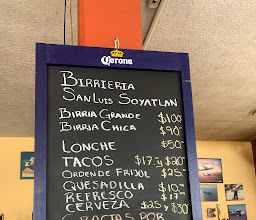 Corona
BIRRIERIA
SAN LUIS SOYATLAN
BIRRIA GRANDE $100
BIRRIA CHICA $90
LONCHE $50
TACOS $17 y $20
ORDEN DE FRIJOL $25
QUESADILLA $10
REFRESCO $17
CERVEZA $25 y $30
GRACIAS POR